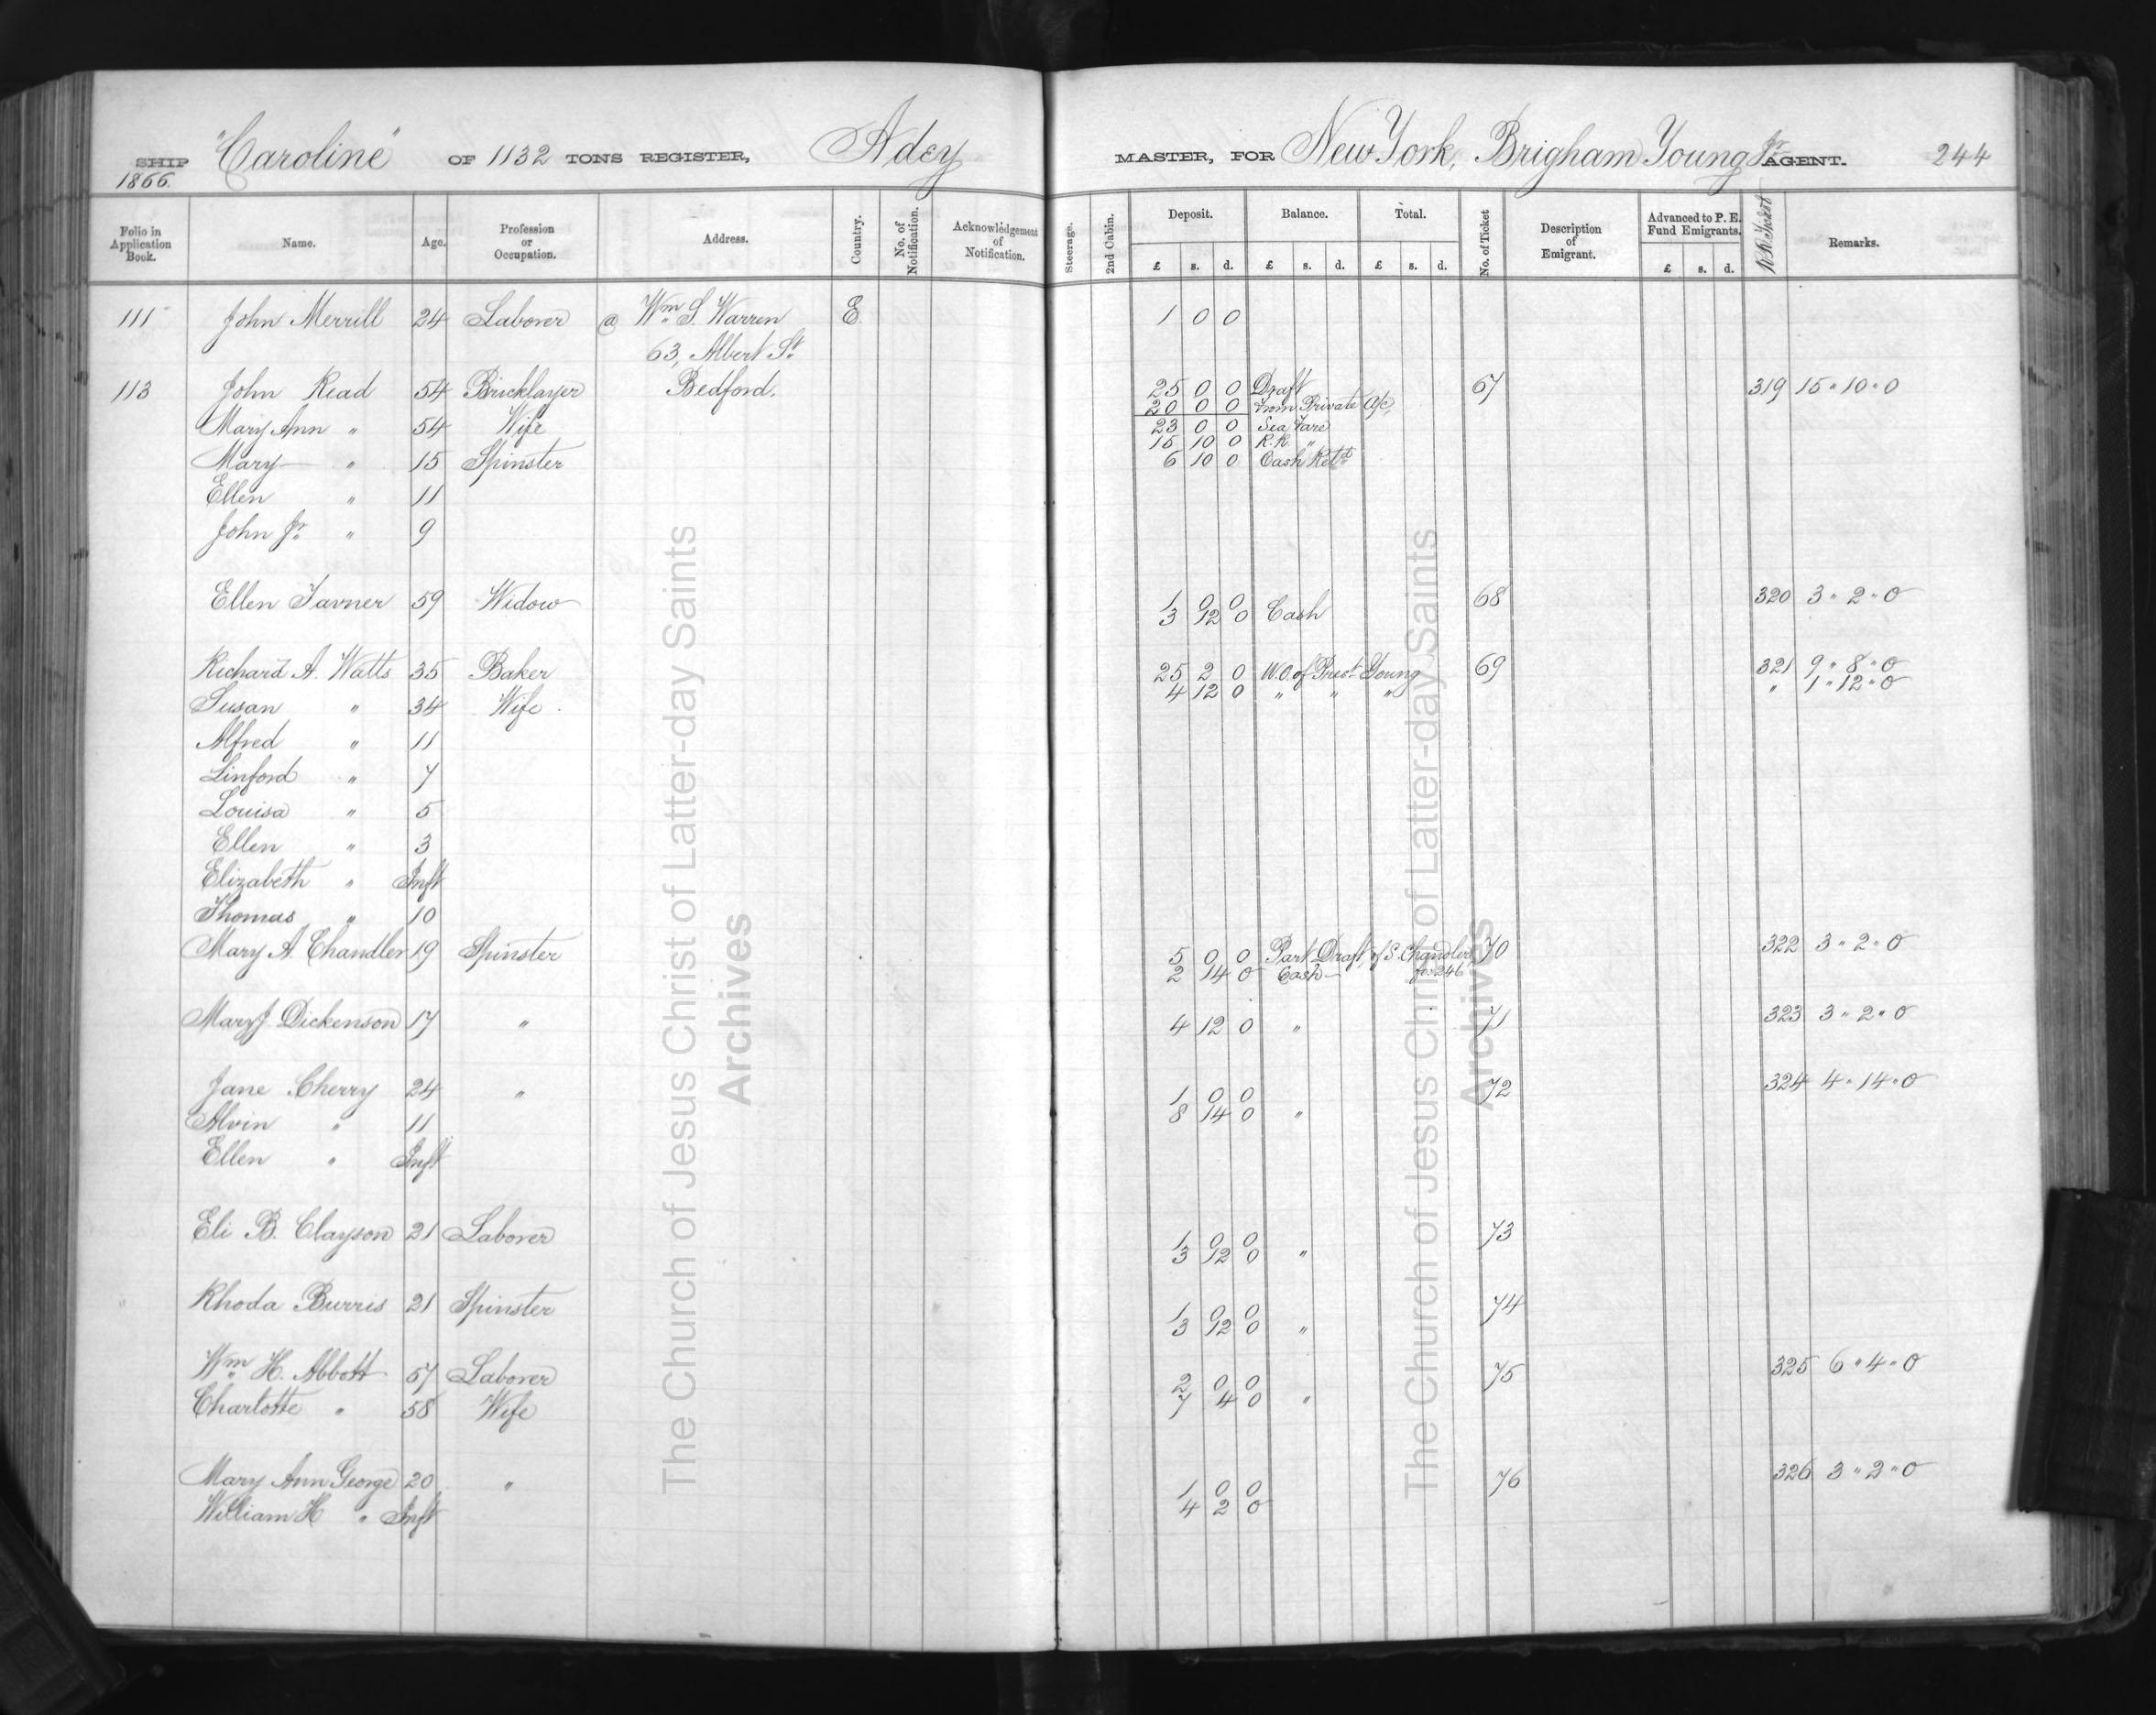 SHIP "Caroline" OF 1132 TONS REGISTER, Adey MASTER, FOR New York, Brigham Young Jr. AGENT. 244
1866.
Folio in Application Book. Name. Age. Profession or Occupation. Address. Country. No. of Notification. Acknowledgement of Notification. Steerage. 2nd Cabin. Deposit. Balance. Total. No. of Ticket Description of Emigrant. Advanced to P. E. Fund Emigrants. R R Ticket Remarks.
£ s. d. £ s. d. £ s. d. £ s. d.
111 John Merrill 24 Laborer @ Wm. S. Warren E 1 0 0
63, Albert St.
113 John Read 54 Bricklayer Bedford. 25 0 0 Draft 67 319 15 " 10 " 0
20 0 0 From Private a/c,
Mary Ann " 54 Wife 23 0 0 Sea Fare
15 10 0 R.R. "
Mary " 15 Spinster 6 10 0 Cash Retd.
Ellen " 11
John Jr. " 9
Ellen Tavner 59 Widow 1 0 0 68 320 3 " 2 " 0
3 12 0 Cash
Richard A. Watts 35 Baker 25 2 0 W.O. of Prest. Young 69 321 9 " 8 " 0
4 12 0 " " " " 1 " 12 " 0
Susan " 34 Wife
Alfred " 11
Linford " 7
Louisa " 5
Ellen " 3
Elizabeth " Inft
Thomas " 10
Mary A. Chandler 19 Spinster 5 0 0 Part Draft of S. Chandler 70 322 3 " 2 " 0
2 14 0 Cash fo. 246
Mary J. Dickenson 17 " 4 12 0 " 71 323 3 " 2 " 0
Jane Cherry 24 " 1 0 0 72 324 4 " 14 " 0
8 14 0 "
Alvin " 11
Ellen " Inft
Eli B. Clayson 21 Laborer 1 0 0 73
3 12 0 "
Rhoda Burris 21 Spinster 1 0 0 74
3 12 0 "
Wm. H. Abbott 57 Laborer 2 0 0 75 325 6 " 4 " 0
7 4 0 "
Charlotte " 58 Wife
Mary Ann George 20 " 1 0 0 76 326 3 " 2 " 0
4 2 0
William H " Inft
The Church of Jesus Christ of Latter-day Saints
Archives
The Church of Jesus Christ of Latter-day Saints
Archives